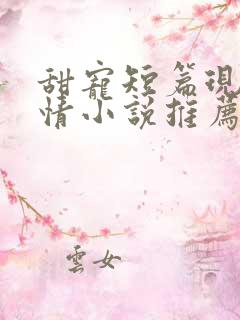 甜寵短篇現
情小說推薦
雲女